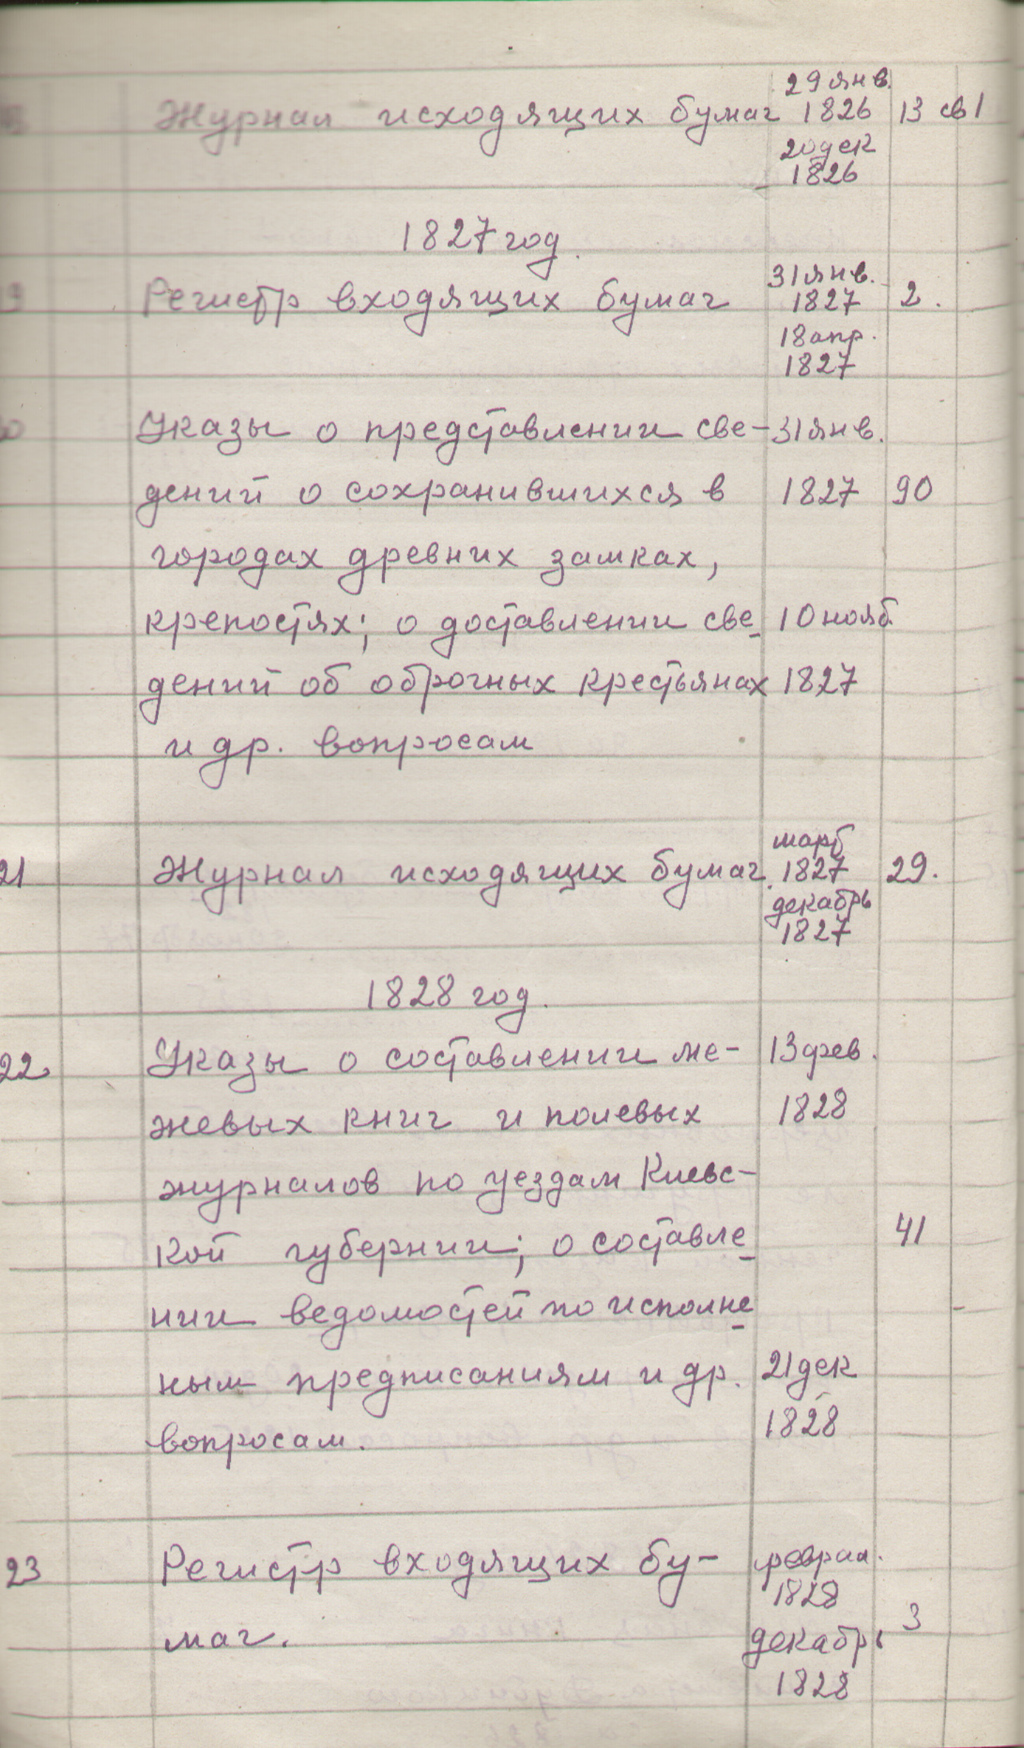 29 янв.
Журнал исходящих бумаг 1826 13 св 1
20 дек
1826
1827 год.
31 янв.
Регистр входящих бумаг 1827 2.
18 апр.
1827
Указы о представлении све- 31 янв.
дений о сохранившихся в 1827 90
городах древних замках,
крепостях; о доставлении све- 10 нояб.
дений об оброчных крестьянах 1827
и др. вопросам
март
21 Журнал исходящих бумаг. 1827 29.
декабрь
1827
1828 год.
22 Указы о составлении ме- 13 фев.
жевых книг и полевых 1828
журналов по уездам Киевс-
кой губернии; о составле- 41
нии ведомостей по исполне-
ным предписаниям и др. 21 дек
вопросам. 1828
23 Регистр входящих бу- феврал.
1828
маг. декабрь 3
1828